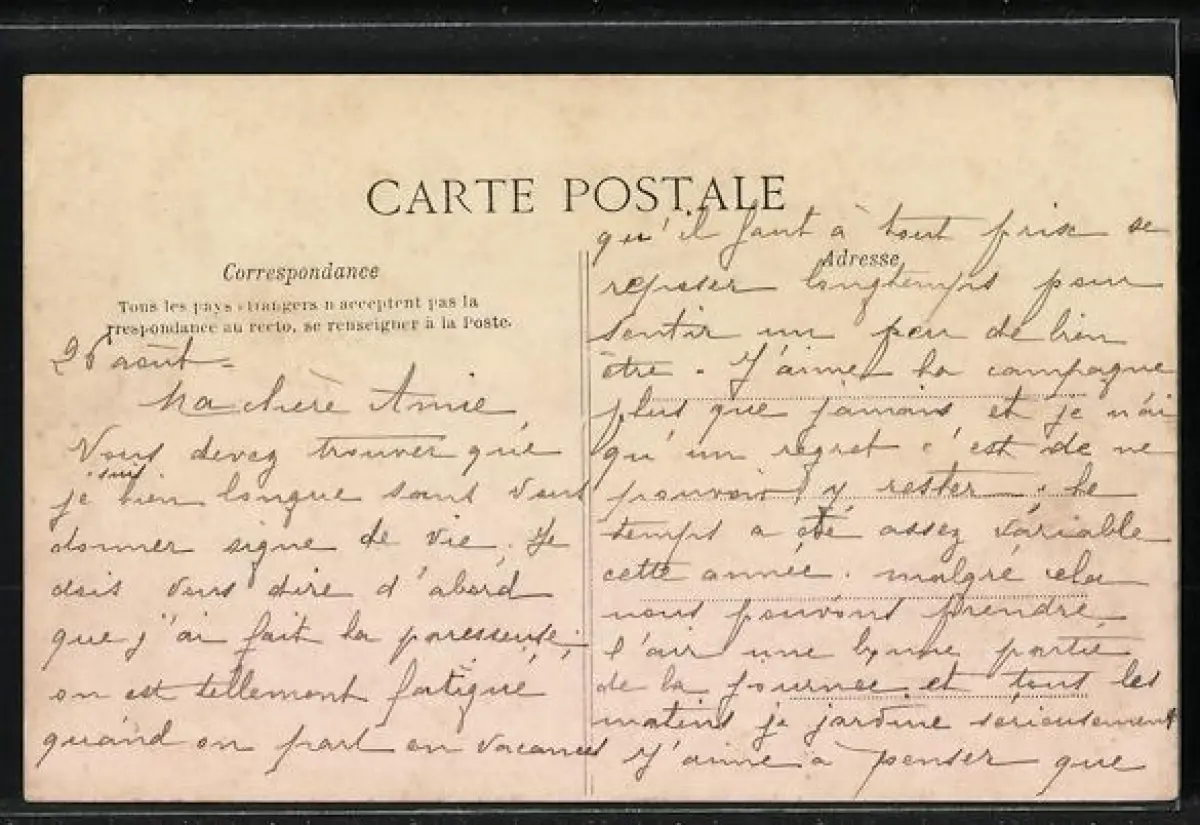 CARTE POSTALE
Correspondance
Tous les pays étrangers n'acceptent pas la
rrespondance au recto, se renseigner à la Poste.
août =
Ma chère Amie
Vous devez trouver que
suis
je bien longue sans vous
donner signe de vie. Je
dois vous dire d'abord
que j'ai fait la paresseuse;
on est tellement fatigué
quand on part en vacances
Adresse
qu'il faut à tout prix se
reposer longtemps pour
sentir un peu de bien
être. J'aime la campagne
plus que jamais et je n'ai
qu'un regret c'est de ne
pouvoir y rester. Le
temps a été assez variable
cette année. malgré cela
nous pouvons prendre
l'air une bonne partie
de la journée et tous les
matins je jardine sérieusement
J'aime à penser que